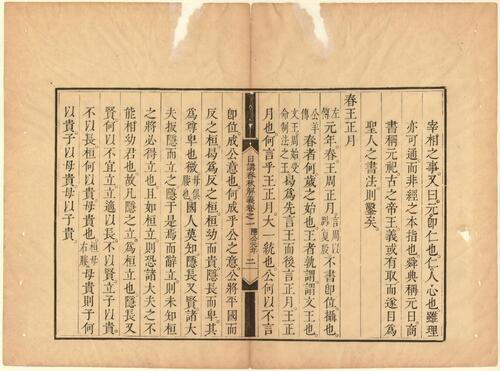 宰相之事又曰元即仁也仁人心也雖理
亦可通而非經之本指也舜典稱元日商
書稱元祀古之帝王義或有取而遂目為
聖人之書法則鑿矣
春王正月
左傳元年春王周正月言周以別夏殷不書即位攝也
公羊傳春者何歲之始也王者孰謂謂文王也
文王周始受命制法之王曷為先言王而後言正月王正
月也何言乎王正月大一統也公何以不言
日講春秋解義卷之一 隱公元年 二
即位成公意也何成乎公之意公將平國而
反之桓曷為反之桓桓幼而貴隱長而卑其
為尊卑也微母俱媵也國人莫知隱長又賢諸大
夫扳隱而立之隱于是焉而辭立則未知桓
之將必得立也且如桓立則恐諸大夫之不
能相幼君也故凡隱之立為桓立也隱長又
賢何以不宜立立適以長不以賢立子以貴
不以長桓何以貴母貴也桓母右媵母貴則子何
以貴子以母貴母以子貴